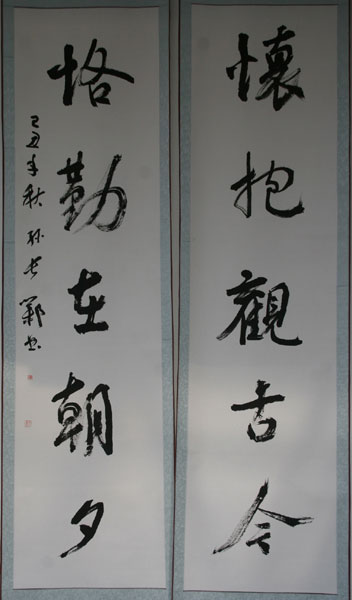 懷抱觀古今
恪勤在朝夕
己丑年秋 孙长 书